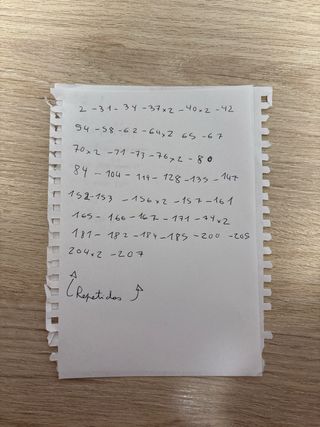 2 - 31 - 34 - 37x2 - 40x2 - 42
54 - 58 - 62 - 64x2 65 - 67
70x2 - 71 - 73 - 76x2 - 80
84 - 104 - 119 - 128 - 135 - 147
152 - 153 - 156x2 - 157 - 161
165 - 166 - 167 - 171 - 74x2
181 - 182 - 184 - 185 - 200 - 205
204x2 - 207
Repetidos